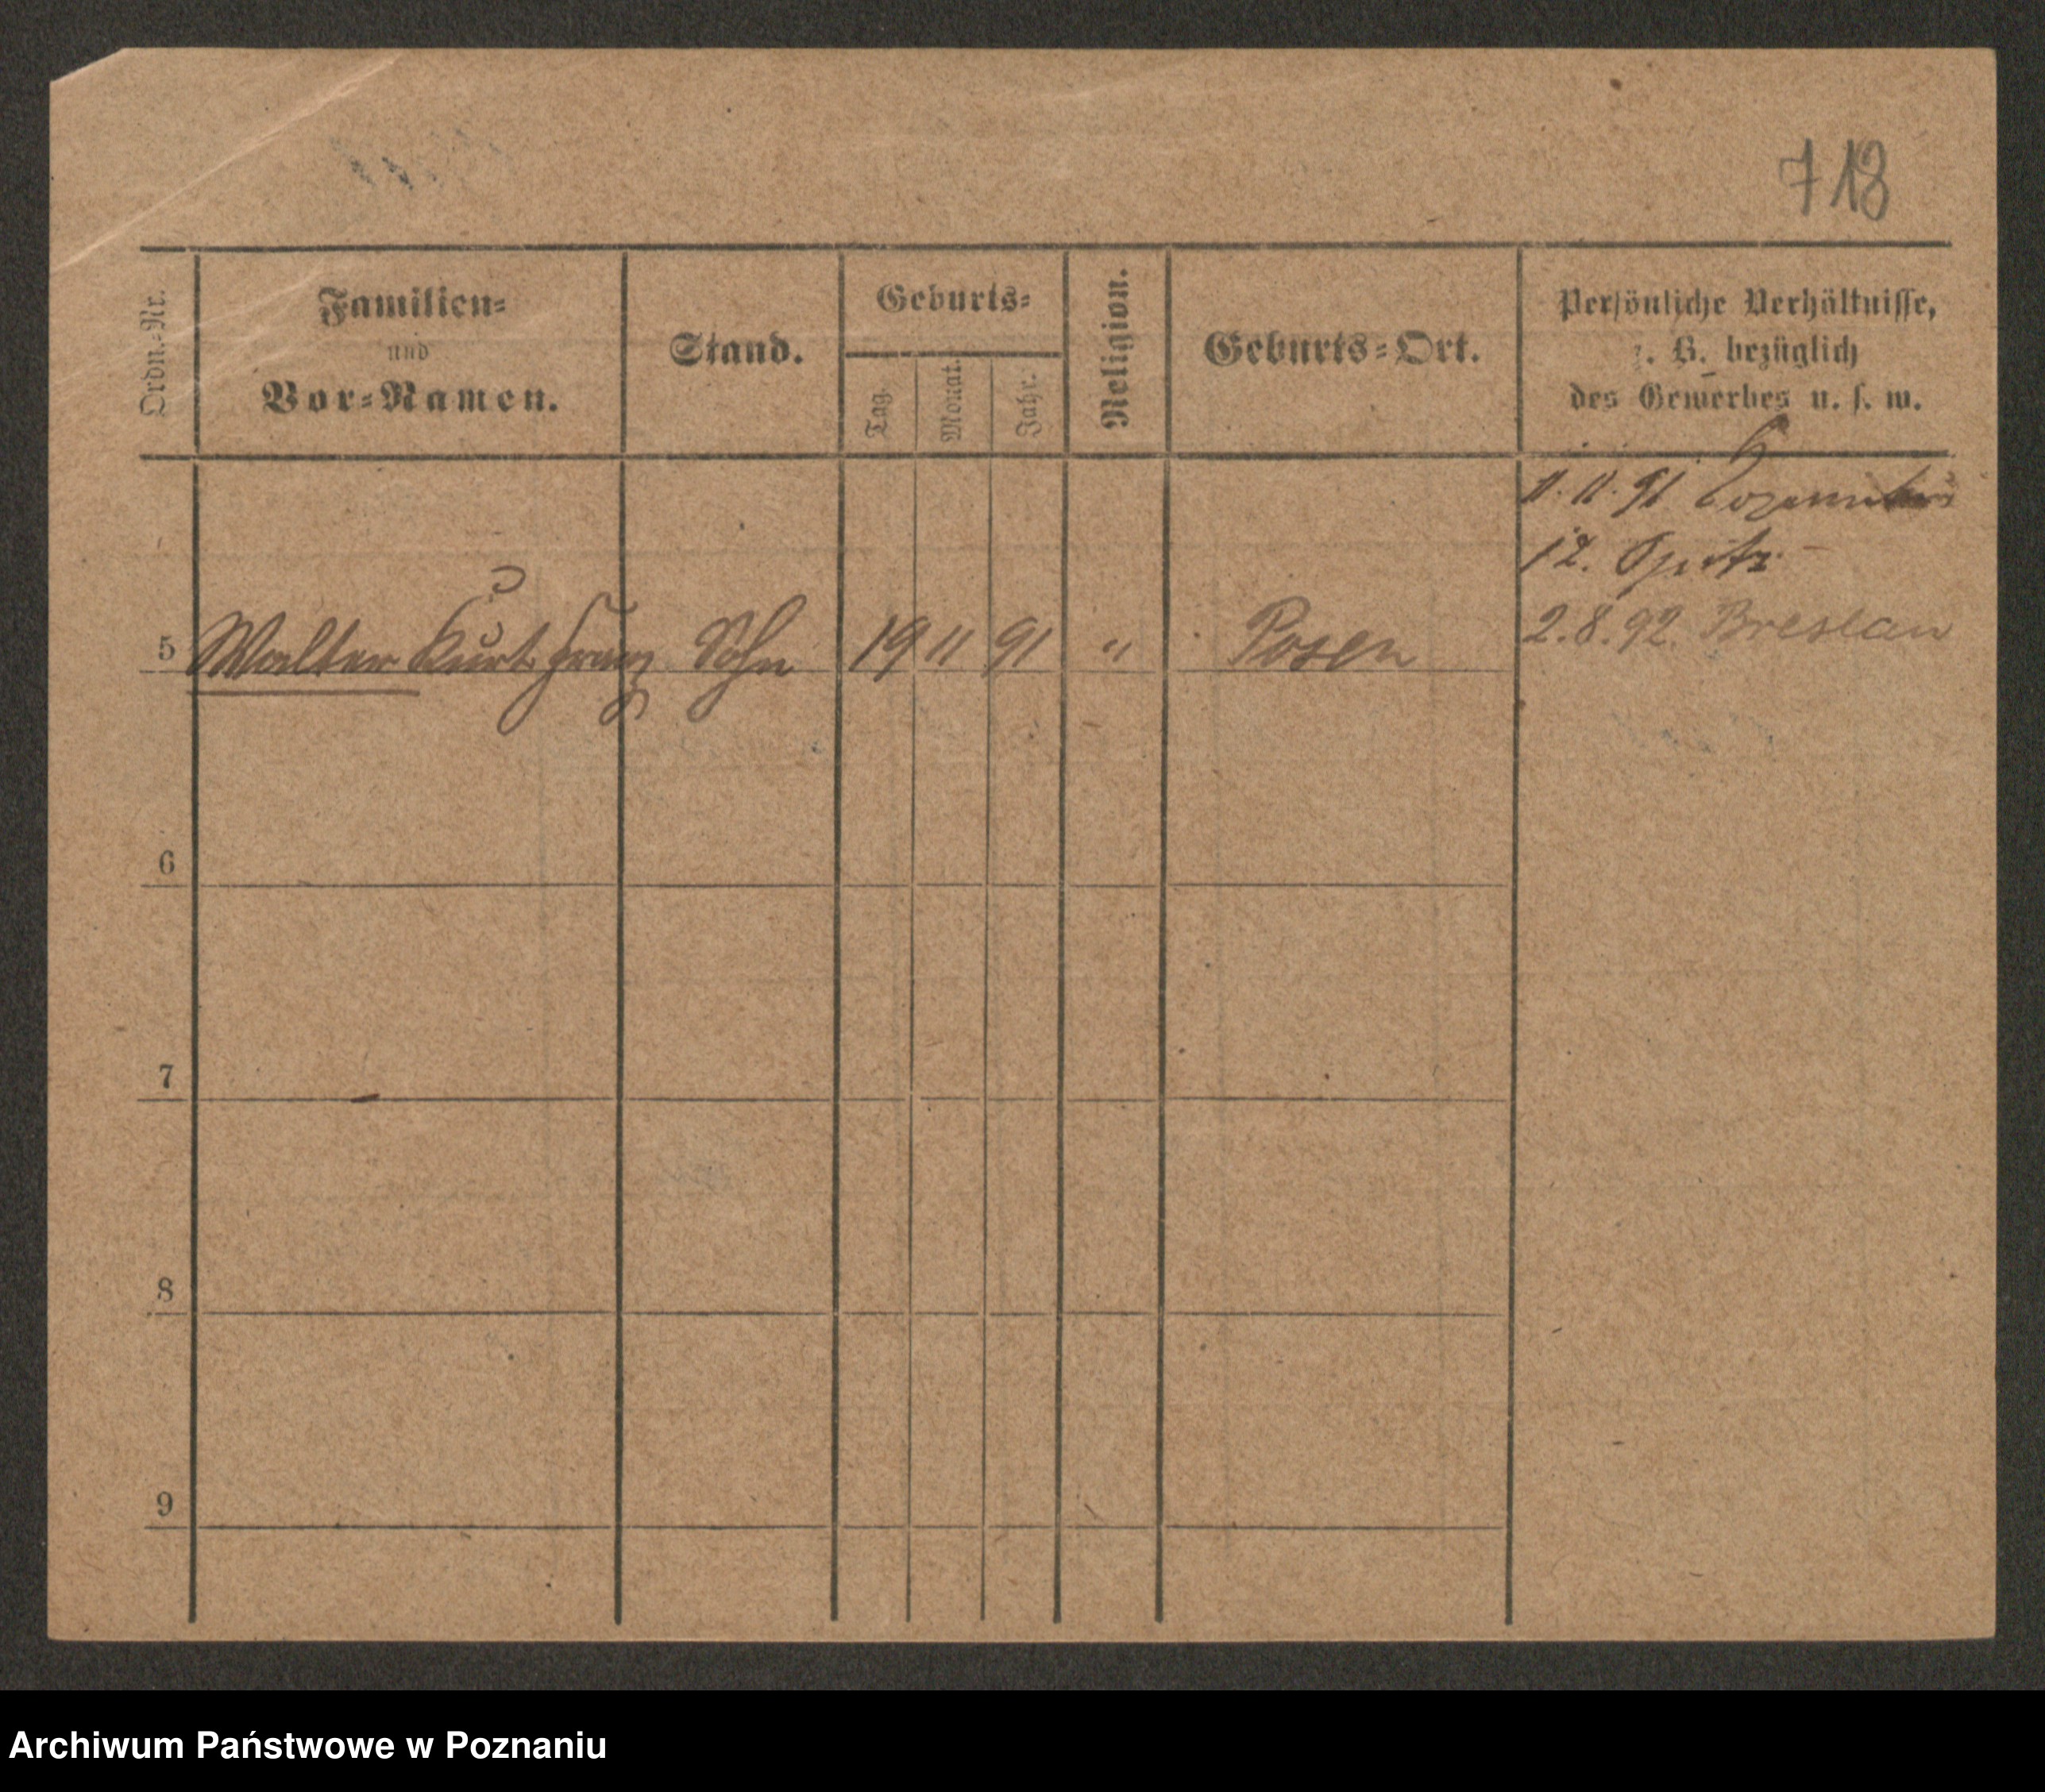 718
Ordn.-Nr.
Familien-
und
Vor-Namen.
Stand.
Geburts-
Tag.
Monat.
Jahr.
Religion.
Geburts-Ort.
Persönliche Verhältnisse,
z. B. bezüglich
des Gewerbes u. s. w.
11. 11. 91
12.
2. 8. 92. Breslau
5 Walter Kurt Franz Sohn 19 11 91 " Posen
6
7
8
9
Archiwum Państwowe w Poznaniu